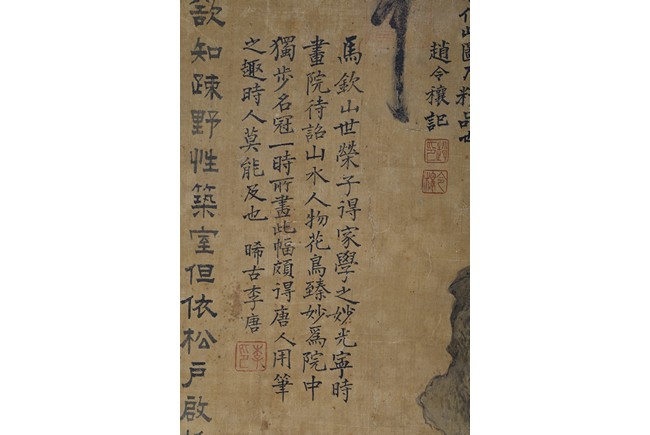 仁山圖乃精品也
趙令穰記
馬欽山世榮子得家學之妙光寧時
畫院待詔山水人物花鳥臻妙爲院中
獨步名冠一時所畫此幅頗得唐人用筆
之趣時人莫能及也 晞古李唐
欲知疎野性築室但依松戶啟